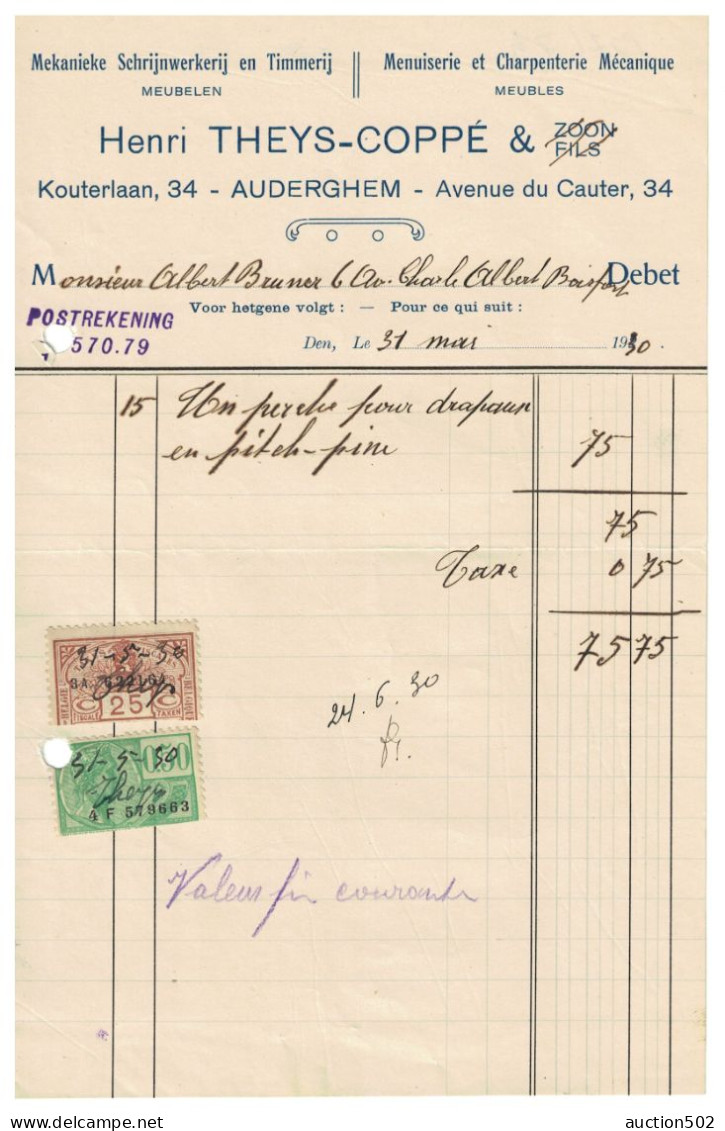 Mekanieke Schrijnwerkerij en Timmerij
MEUBELEN
Menuiserie et Charpenterie Mécanique
MEUBLES
Henri THEYS-COPPÉ & ZOON FILS
Kouterlaan, 34 - AUDERGHEM - Avenue du Cauter, 34
Monsieur Albert Bruner 6 Av. Charle Albert Boisfort Debet
Voor hetgene volgt : — Pour ce qui suit :
POSTREKENING
570.79
Den, Le 31 mai 1930.
15 Un perche pour drapaux
en pitch-pine 75
75
Taxe 0 75
75 75
31-5-30
25
BELGIE
FISCALE TAXEN
BELGIQUE
24.6.30
31-5-30
0.90
Theys
4 F 579663
Valeur fin courante
auction502